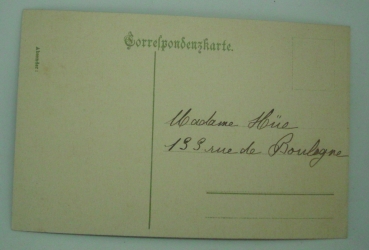 Correspondenzkarte.
Absender:
Madame Hüe
133 rue de Boulogne